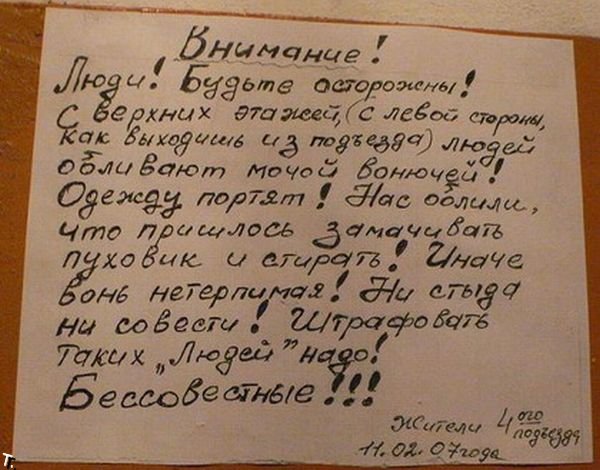 Внимание!
Люди! Будьте осторожны!
С верхних этажей, (с левой стороны,
как выходишь из подъезда) людей
обливают мочой вонючей!
Одежду портят! Нас облили,
что пришлось замачивать
пуховик и стирать! Иначе
вонь нетерпимая! Ни стыда
ни совести! Штрафовать
таких „Людей" надо!
Бессовестные!!!
Жители 4ого подъезда
11.02.07года